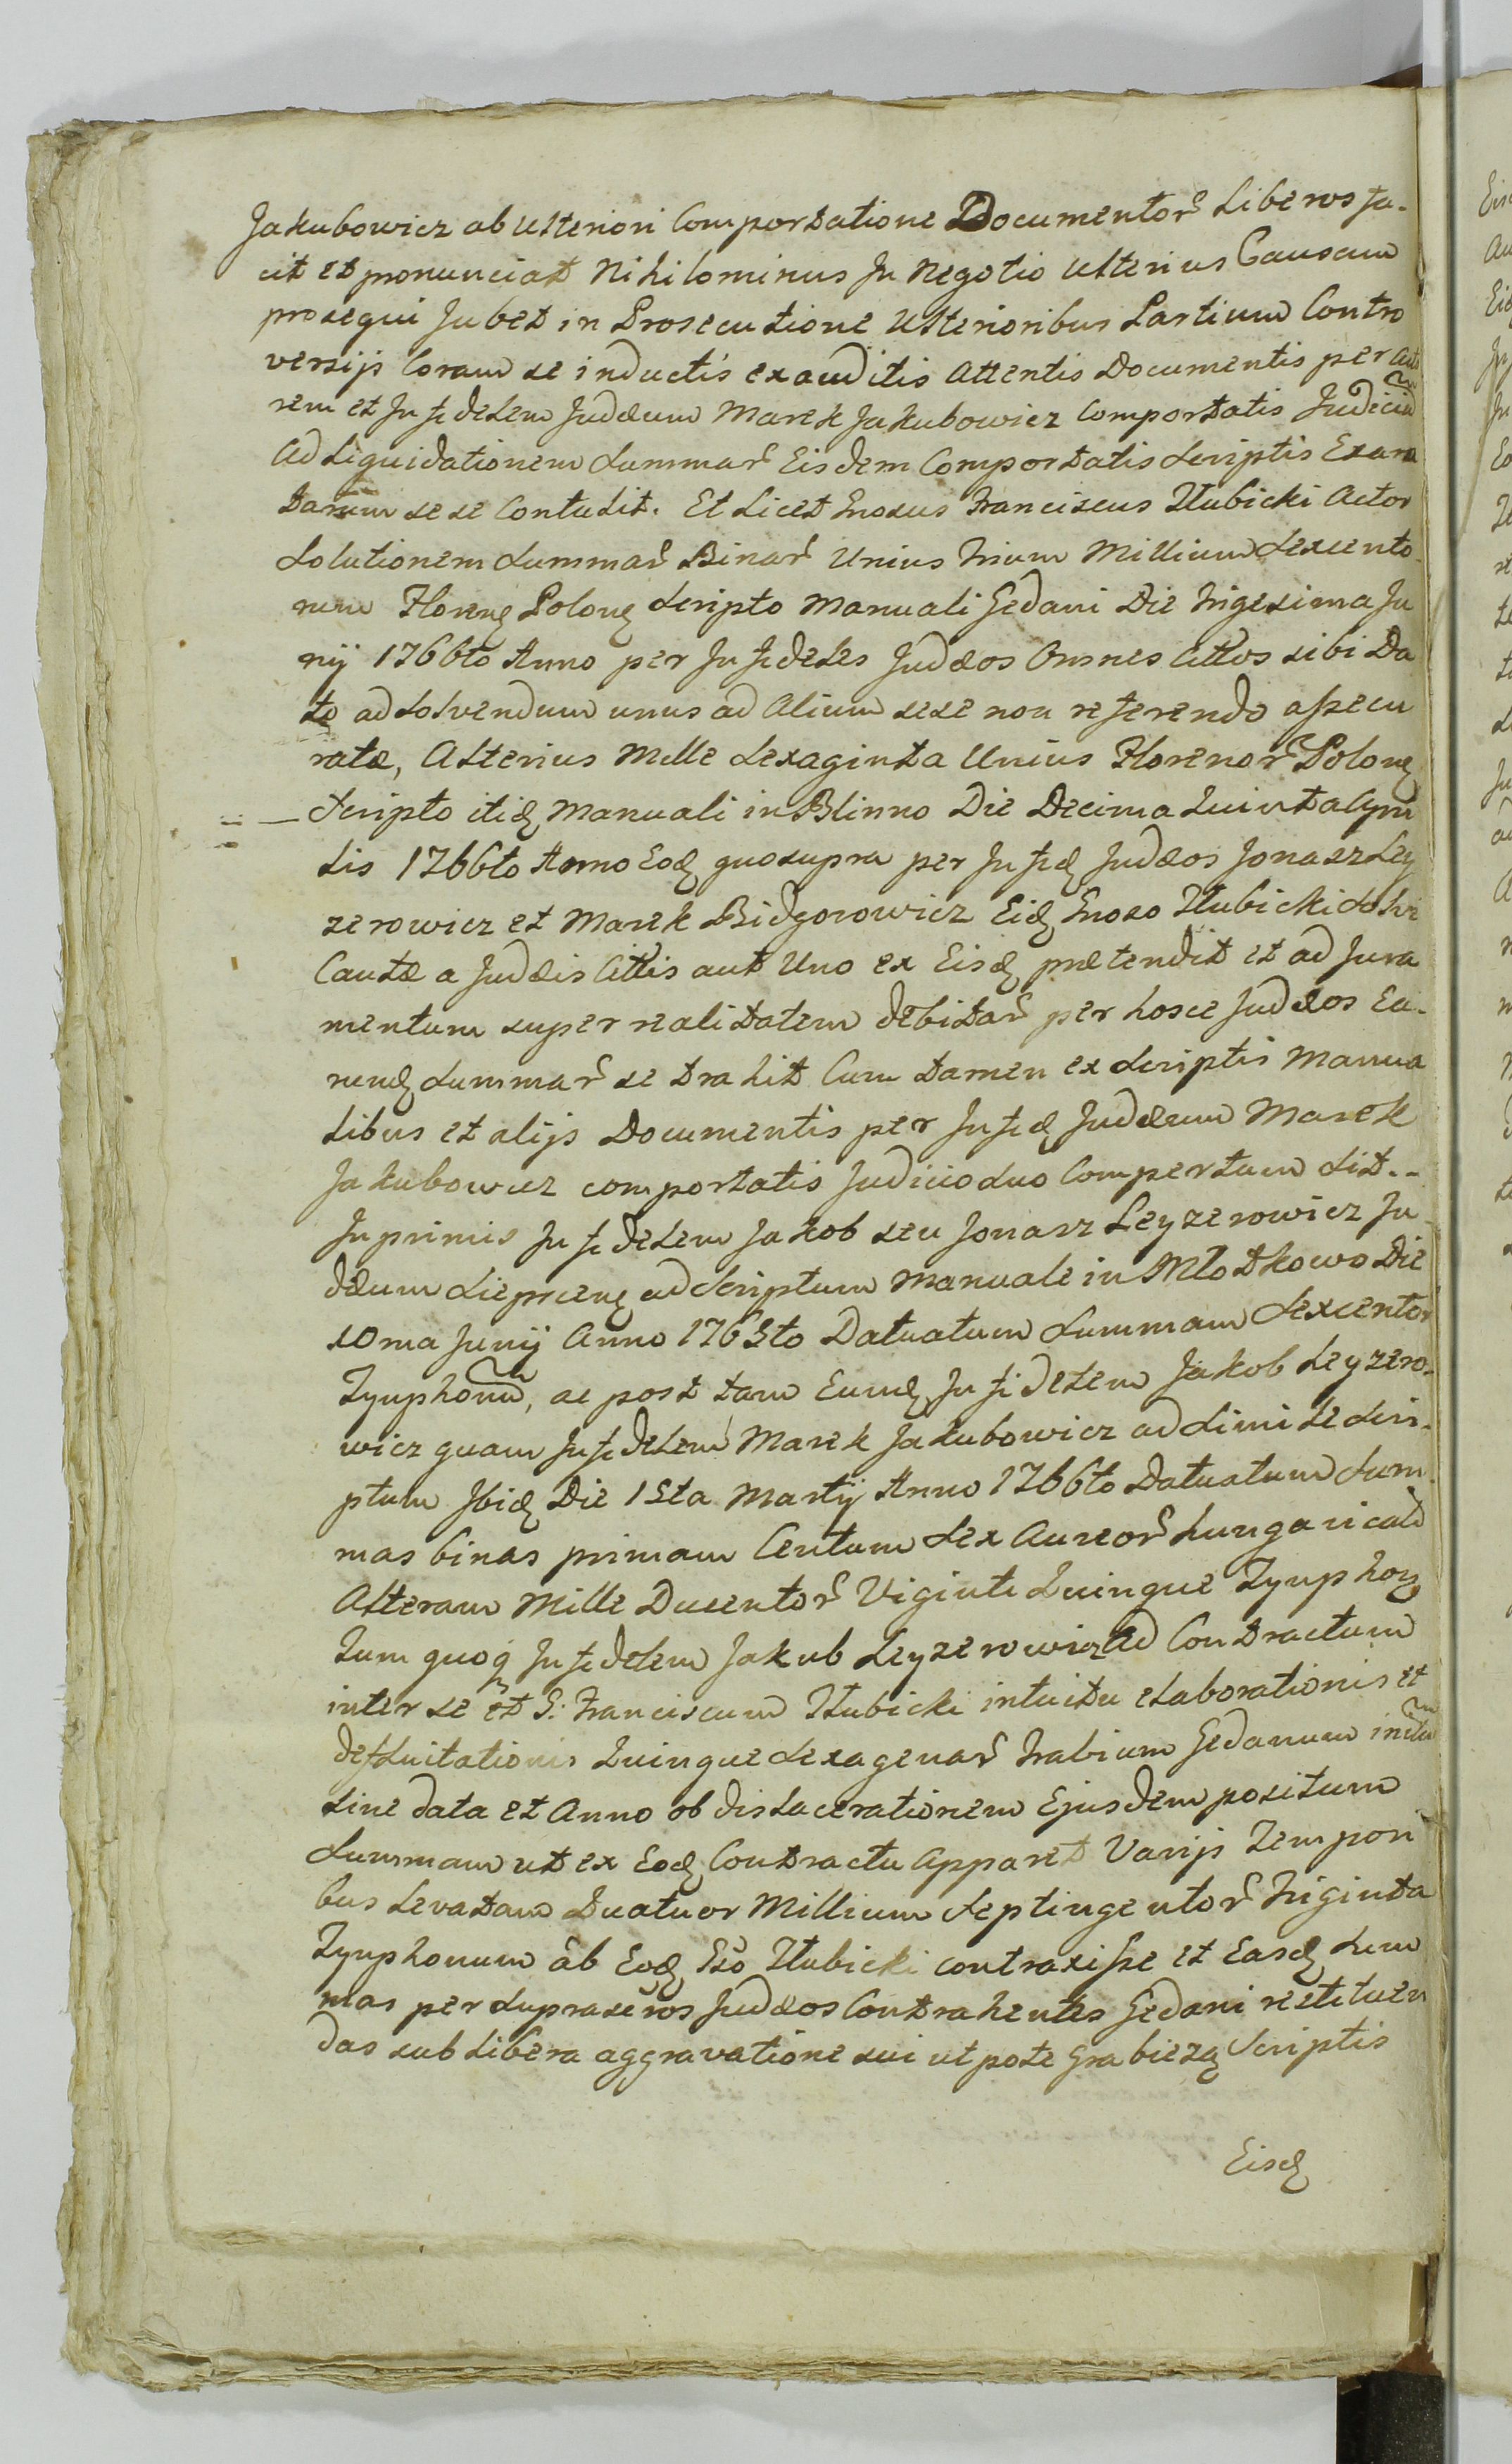 Jakubowicz ab ulteriori Comportatione Documentor Liberos fa-
cit et pronunciat Nihilominus In Negotio ulterius Causam
prosequi Jubet in Prosecutione Ulterioribus Partium Contro
versijs Coram se inductis exauditis Attentis Documentis per Acto
rem et Infidelem Judæum Marek Jakubowicz Comportatis Judicium
Ad Liquidationem Summar Eisdem Comportatis Scriptis Exara
tarum sese Contulit. Et Licet Gnosus Franciscus Itubicki Actor
Solutionem Summar Binar Unius Trium Millium Sexcento
rum Florenq Polonq Scripto Manuali Gedani Die Trigesima Ju
nij 1766to Anno per Infideles Judæos Omnes Cittos sibi Da
to ad Solvendum unus ad Alium sese non referendo assecu
ratæ, Alterius Mille Sexaginta Unius Florenor Polonq
Scripto itidq Manuali in Blinno Die Decima Quinta Apri
lis 1766to Anno Eodq quo supra per Infidq Judæos Jonasz Ley
zerowicz et Marek Bidgorowicz Eidq Gnoso Itubicki Solvi
Cautæ a Judæis Cittis aut Uno ex Eisdq prætendit et ad Jura
mentum super realitatem debitar per hosce Judæos Ea-
rundq Summar se trahit Cum tamen ex Scriptis Manua
libus et alijs Documentis per Infidq Judæum Marek
Jakubowicz comportatis Judicio suo Compertum sit.-
Inprimis Infidelem Jakob seu Jonasz Leyzerowicz Ju
dæum Sieprcenq ad Scriptum Manuale in Młotkowo Die
10ma Junij Anno 1765to Datuatum Summam Sexcentor
Tynphonum, ac post tam Eumdq Infidelem Jakob Leyzero-
wicz quam Infidelem Marek Jakubowicz ad Simile Scri-
ptum Ibidq Die 15ta Martij Anno 1766to Datuatum Sum
mas binas primam Centum Sex Aureor hungaricalium
Alteram Mille Ducentor Viginti Quinque Tynphonq
Tum quoq Infidelem Jakub Leyzerowicz Ad Contractum
inter se et G: Franciscum Itubicki intuitu elaborationis et
defluitationis Quinque Sexagenar Trabium Gedanum initum
Sine data et Anno ob dislacerationem Ejusdem positum
Summam ut ex Eodq Contractu Apparet Varijs Tempori
bus Levatam Quatuor Millium Septingentor Triginta
Tynphonum ab Eodq Gso Itubicki contraxisse et Easdq Sum
mas per Supraseros Judæos Contrahentes Gedani restituen
das sub Libera aggravatione sui utpote Grabiezą Scriptis
Eisdq